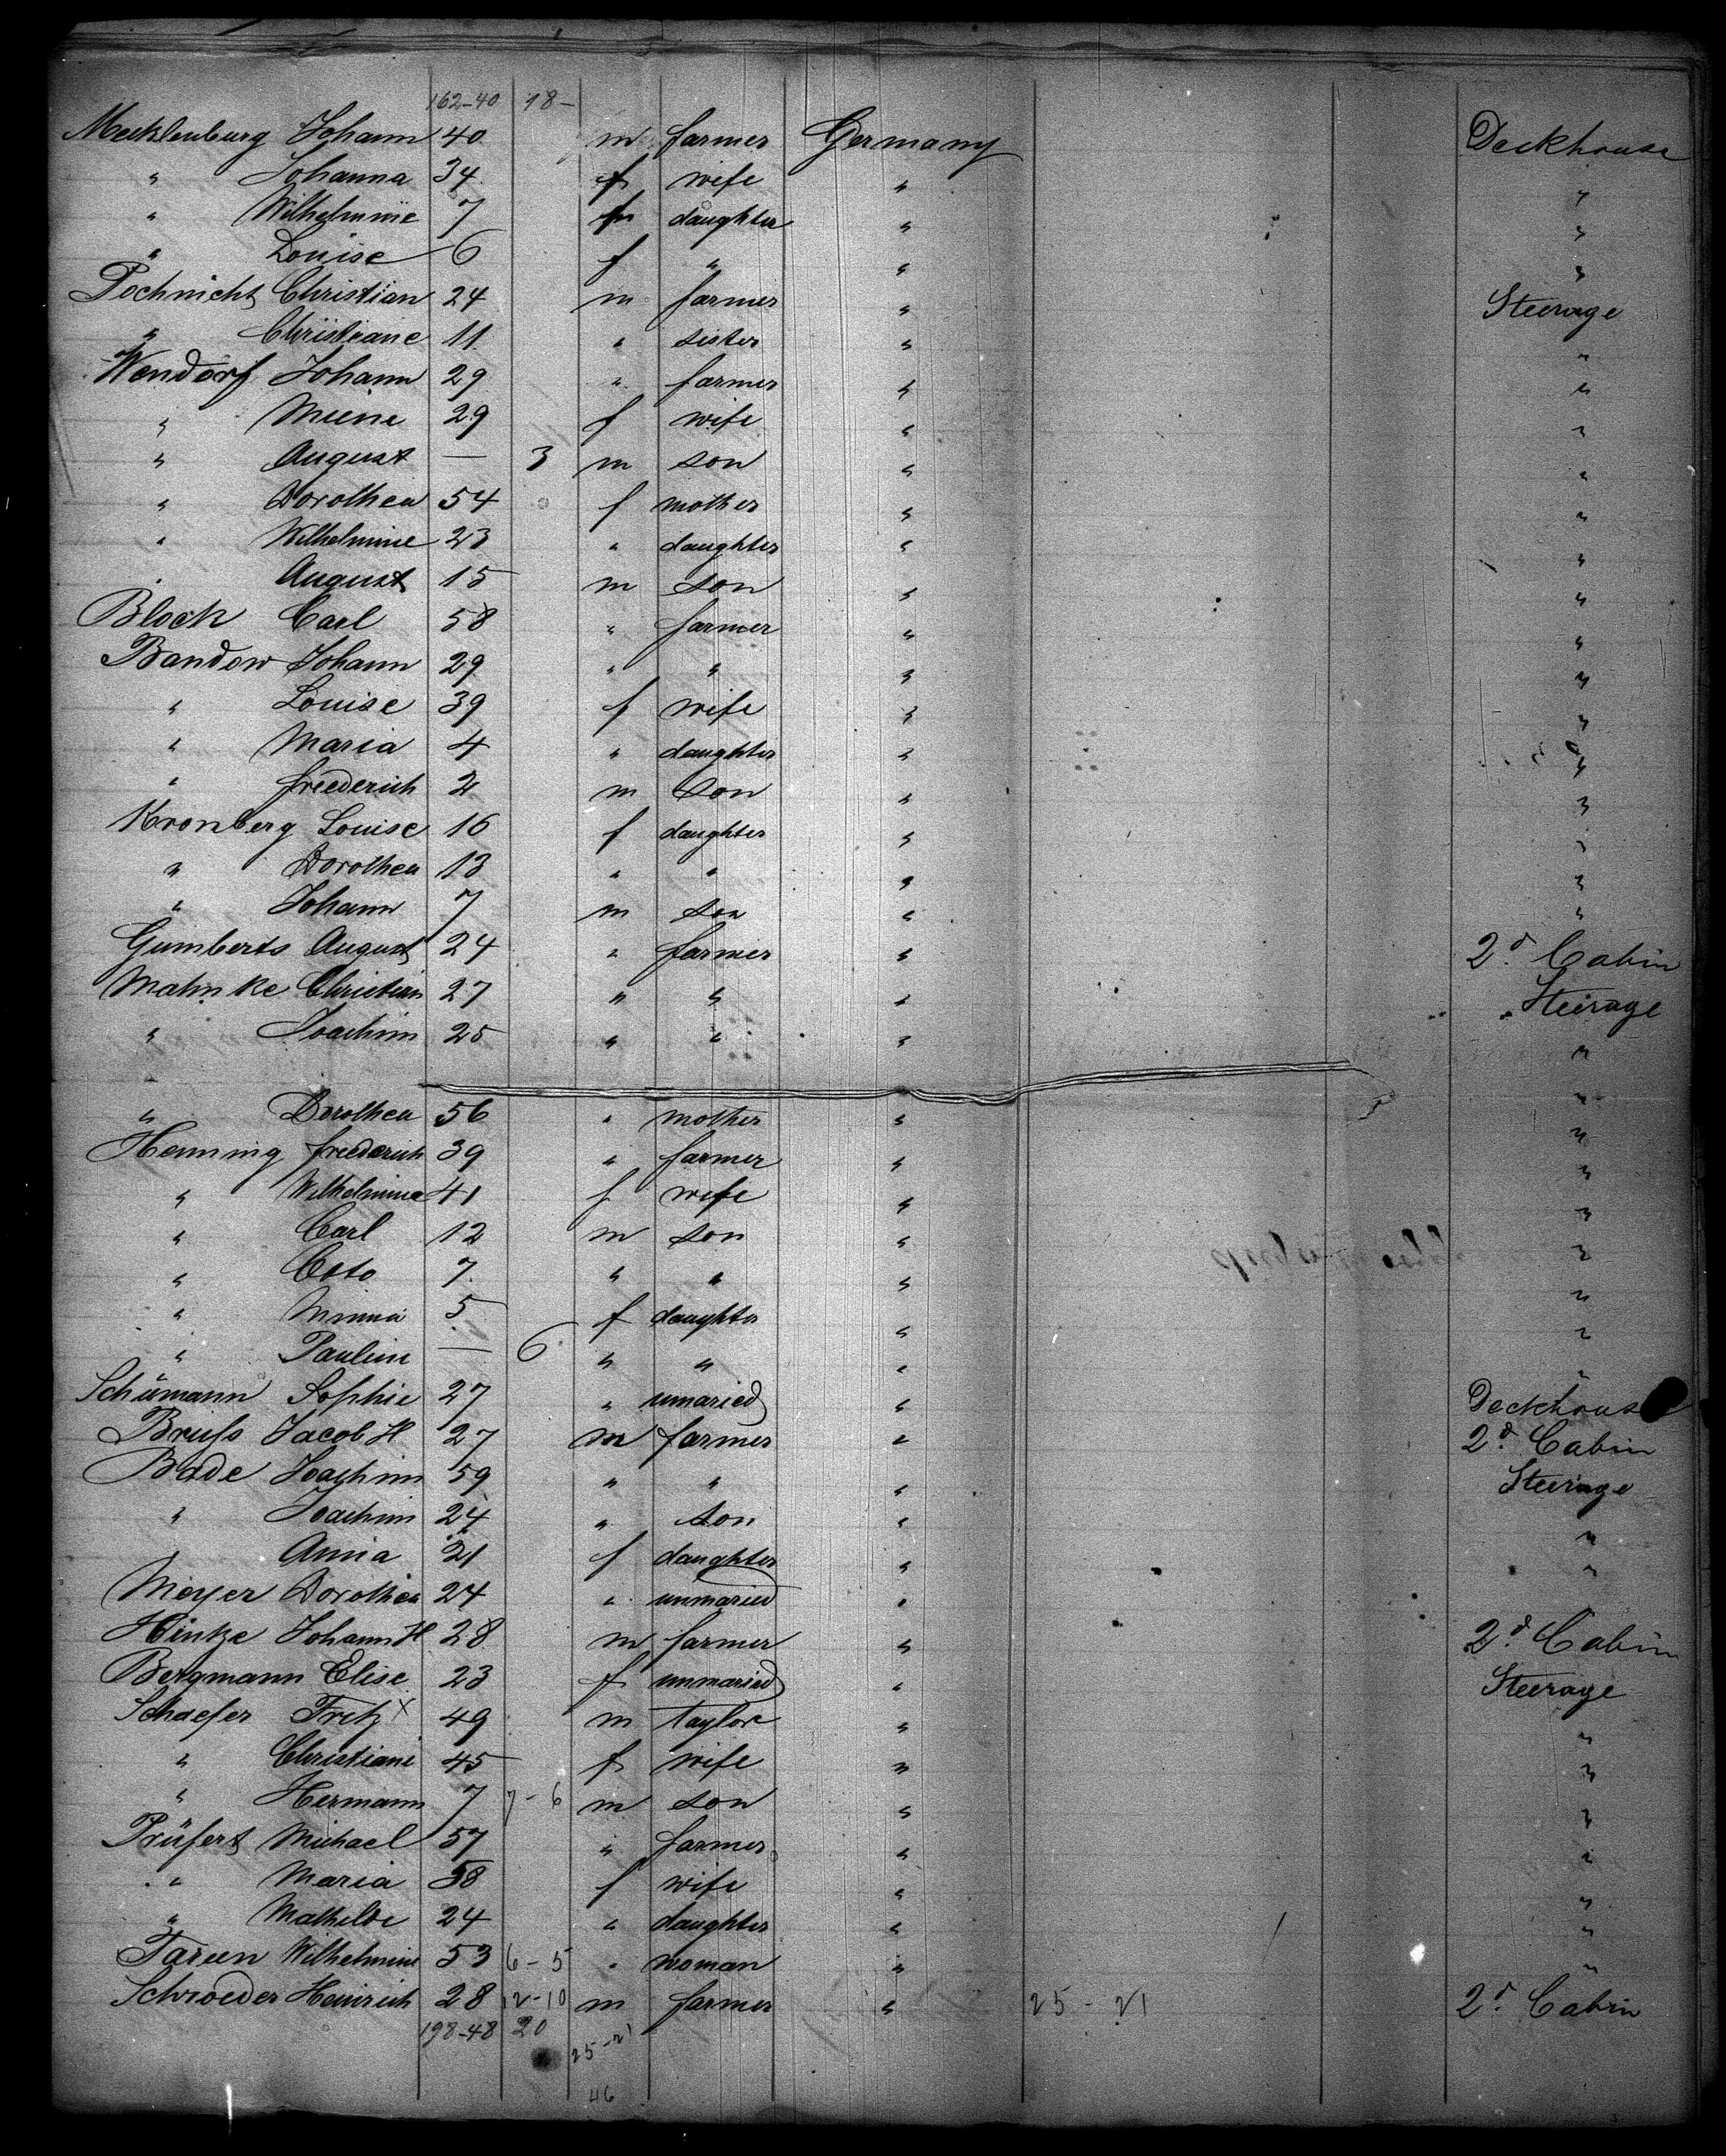 162-40 18-
Mecklenburg Johann 40 m farmer Germany Deckhouse
" Johanna 34 f wife " "
" Wilhelmine 7 daughter " "
" Louise 6 f " " "
Pochnicht Christian 24 m farmer " Steerage
" Christiane 11 " sister " "
Wendorf Johann 29 " farmer " "
" Miene 29 f wife " "
" August — 3 m son " "
" Dorothea 54 f mother " "
" Wilhelmine 23 " daughter " "
" August 15 m son " "
Block Carl 58 " farmer " "
Bandow Johann 29 " " " "
" Louise 39 f wife " "
" Maria 4 " daughter " "
" friederich 2 m son " "
Kronberg Louise 16 f daughter " "
" Dorothea 13 " " " "
" Johann 7 m son " "
Gumberts August 24 " farmer " 2d Cabin
Mahnke Christian 27 " " " Steirage
" Joachim 25 " " " "
" Dorothea 56 " mother " "
Henning friederich 39 " farmer " "
" Wilhelmine 41 f wife " "
" Carl 12 m son " "
" Otto 7 " " " "
" Minna 5 f daughter " "
" Pauline — 6 " " " "
Schümann Sophie 27 " unmaried " Deckhouse
Bruss Jacob H 27 m farmer " 2d Cabin
Bade Joachim 59 " " " Steerage
" Joachim 24 " son " "
" Anna 21 f daughter " "
Meyer Dorothea 24 " unmaried "
Hintze Johann H 28 m farmer " 2d Cabin
Bergmann Elise 23 f unmaried " Steerage
Schaefer Fritz x 49 m taylor " "
" Christiane 45 f wife " "
" Hermann 7 7-6 m son " "
Prüfert Michael 57 " farmer " "
" Maria 58 f wife " "
" Mathilde 24 " daughter " "
Tareen Wilhelmine 53 6-5 " woman " "
Schroeder Heinrich 28 12-10 m farmer " 25-21 2d Cabin
198-48 20 25-21
46